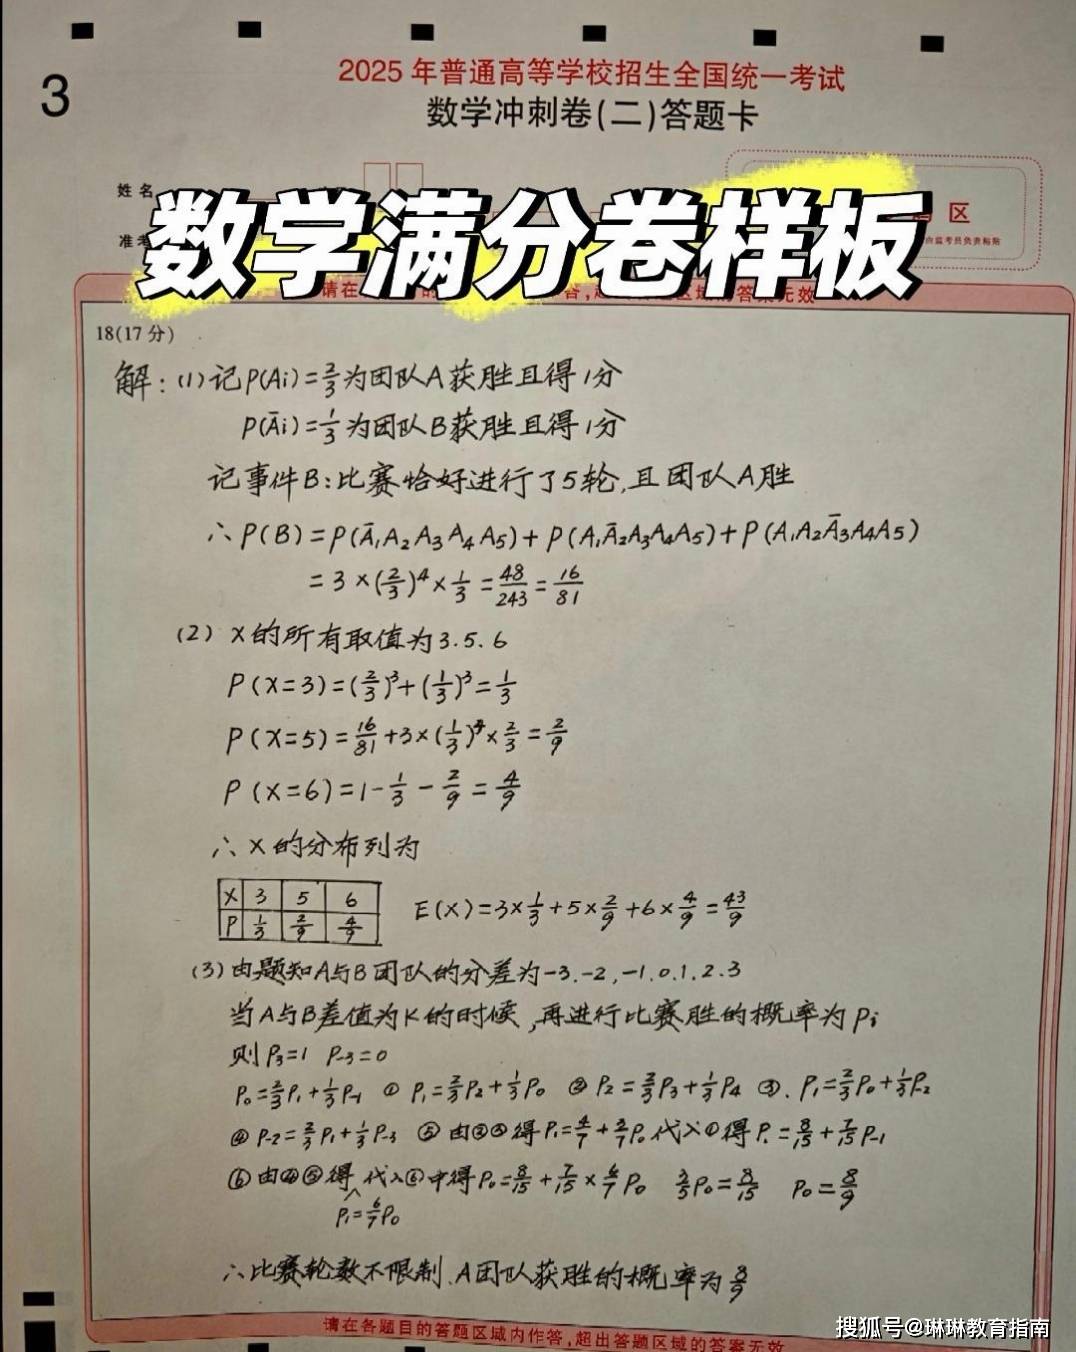 3
2025年普通高等学校招生全国统一考试
数学冲刺卷(二)答题卡
姓名
准考
区
由监考员负责粘贴
数学满分卷样板
请在
答案无效
18(17分)
解:(1)记P(Ai)=2/3为团队A获胜且得1分
P(Āi)=1/3为团队B获胜且得1分
记事件B:比赛恰好进行了5轮,且团队A胜
∴P(B)=P(Ā₁A₂A₃A₄A₅)+P(A₁Ā₂A₃A₄A₅)+P(A₁A₂Ā₃A₄A₅)
=3×(2/3)⁴×1/3=48/243=16/81
(2) X的所有取值为3.5.6
P(X=3)=(2/3)³+(1/3)³=1/3
P(X=5)=16/81+3×(1/3)⁴×2/3=2/9
P(X=6)=1-1/3-2/9=4/9
∴X的分布列为
X 3 5 6
P 1/3 2/9 4/9
E(X)=3×1/3+5×2/9+6×4/9=43/9
(3)由题知A与B团队的分差为-3.-2,-1.0.1.2.3
当A与B差值为K的时候,再进行比赛胜的概率为Pi
则P₃=1 P₋₃=0
P₀=2/3P₁+1/3P₋₁ ① P₁=2/3P₂+1/3P₀ ② P₂=2/3P₃+1/3P₄ ③. P₁=2/3P₀+1/3P₋₂
④ P₋₂=2/3P₁+1/3P₋₃ ⑤ 由②③得P₁=4/7+3/7P₀代入①得P.=8/15+7/15P₋₁
⑥由④⑤得P₁=6/7P₀代入⑥中得P₀=8/15+7/15×6/7P₀ 3/5P₀=8/15 P₀=8/9
∴比赛轮数不限制.A团队获胜的概率为8/9
请在各题目的答题区域内作答,超出答题区域的答案无效
搜狐号@琳琳教育指南